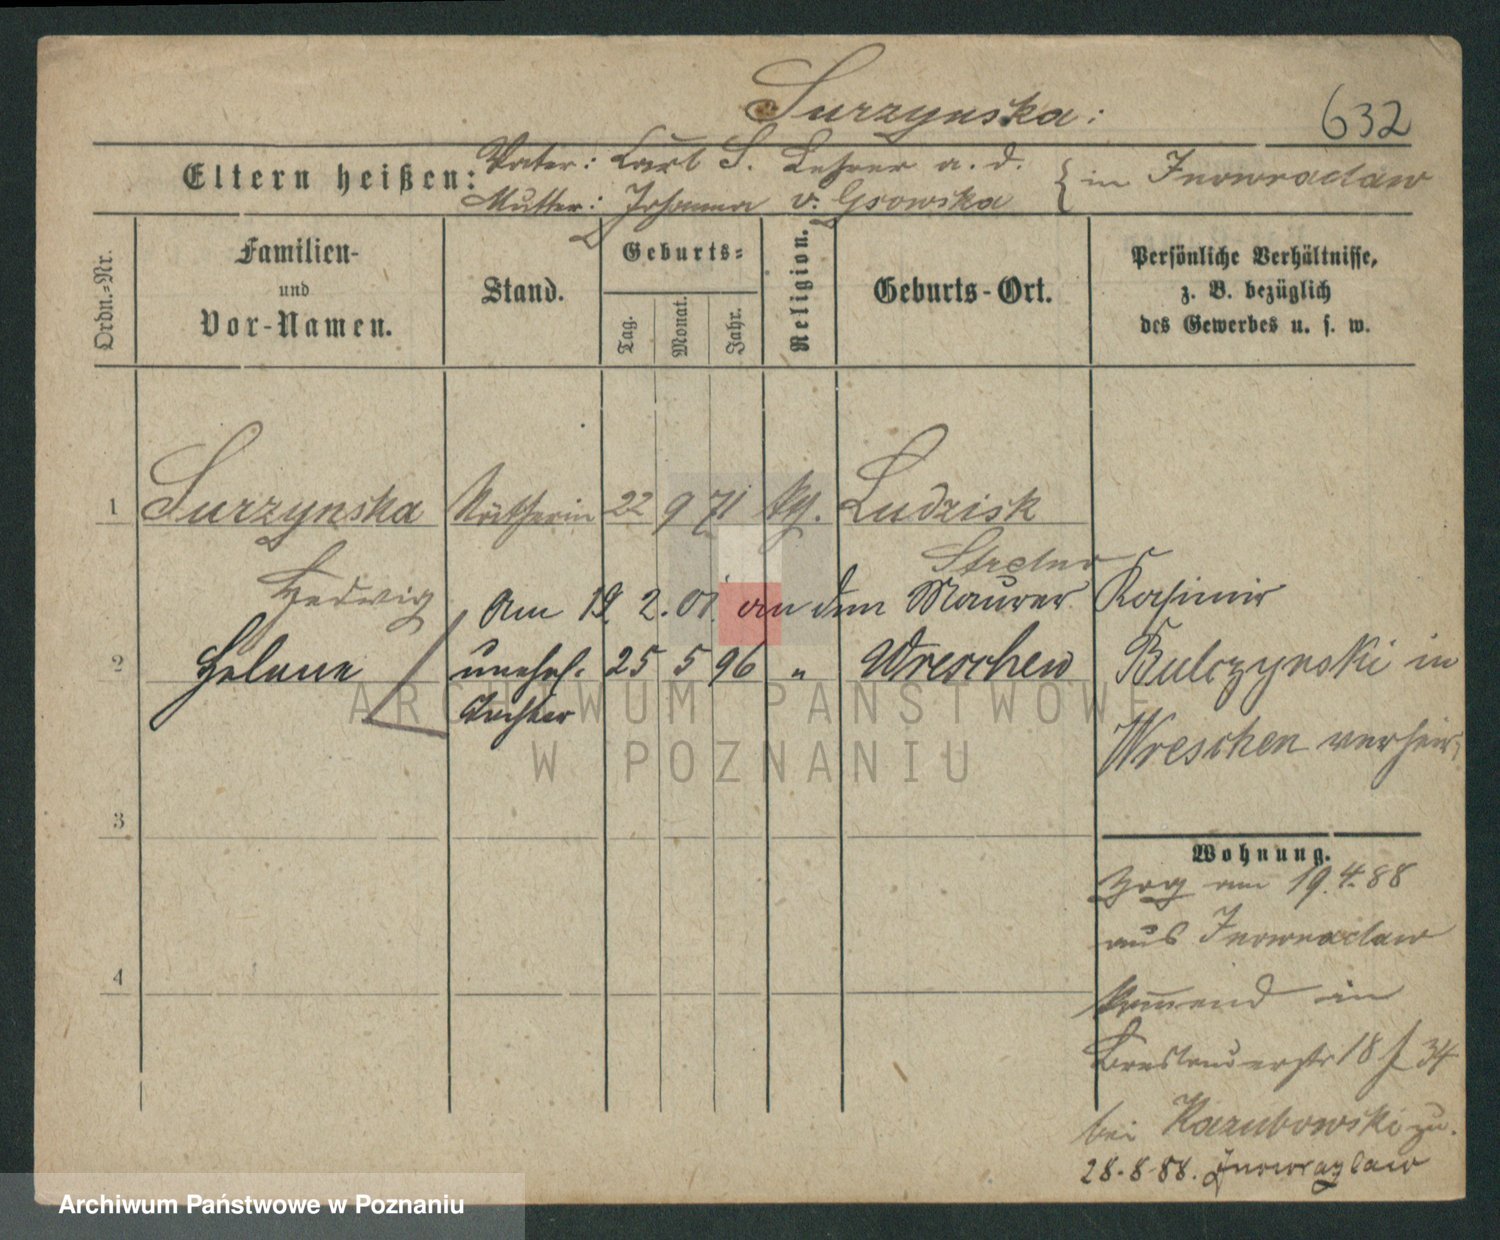 Surzynska:
632
Eltern heißen:
Vater: Carl S. Lehrer a. d.
Mutter: Johanna v. Gsowska
in Inowraclaw
Ordn.-Nr.
Familien-
und
Vor-Namen.
Stand.
Geburts-
Tag.
Monat.
Jahr.
Religion.
Geburts-Ort.
Persönliche Verhältnisse,
z. B. bezüglich
des Gewerbes u. s. w.
1 Surzynska Nätherin 22 9 71 kth. Ludzisk
Strelno
Hedwig
Am 19. 2. 01. an den Maurer Kasimir
2 Helene unehel. 25 5 96 " Wreschen
Bulczynski in
Tochter
Wreschen verheir.
3
4
Wohnung.
Zog am 19.4.88
aus Inowraclaw
kommend in
Breslauerstr 18 34
bei Kazubowski zu.
28.8.88. Inowrazlaw
ARCHIWUM PAŃSTWOWE
W POZNANIU
Archiwum Państwowe w Poznaniu